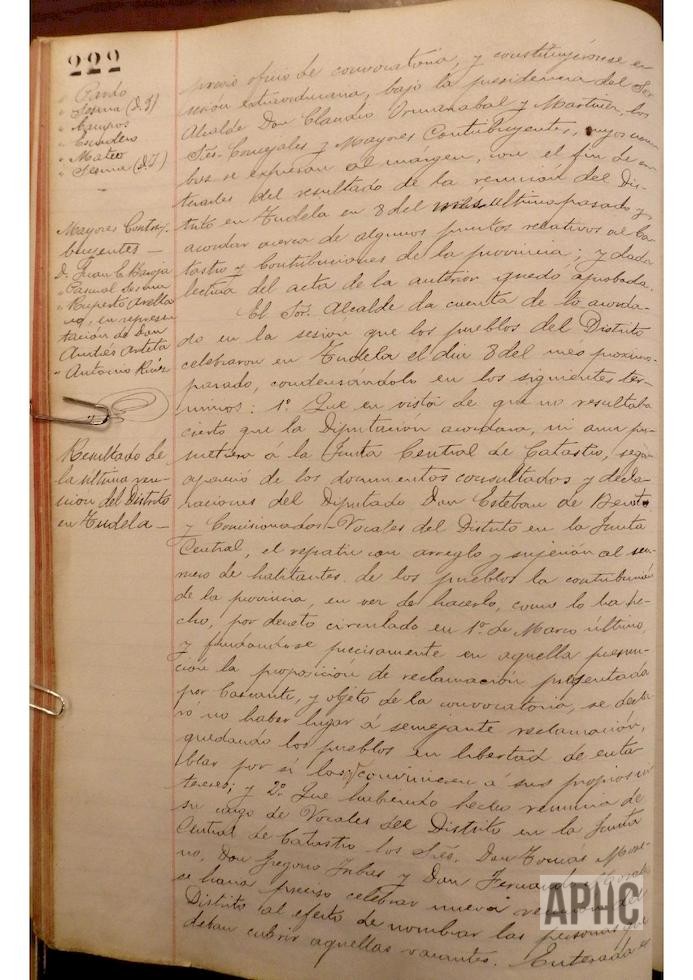 222
" Pardo
" Sesma (D. J)
" Campos
" Escudero
" Mateo
" Sesma (D. T)
Mayores Contri-
buyentes —
D. Juan C. Baroja
" Pascual Sesma
" Ruperto Arella
no, en represen
tación de Don
Andrés Arteta
" Antonio Ruiz
Resultado de
la última reu-
nion del Distrito
en Tudela —
previo oficio de convocatoria, y constituyéronse en
sesión extraordinaria, bajo la presidencia del Sor
Alcalde Don Claudio y Martinez, los
Sres. Concejales y Mayores Contribuyentes, cuyos nom
bres se expresan al márgen, con el fin de en
terarles del resultado de la reunión del Dis-
trito en Tudela en 8 del mes último pasado y
acordar acerca de algunos puntos relativos al Ca-
tastro y Contribuciones de la provincia; y dada
lectura del acta de la anterior quedó aprobada.
El Sor. Alcalde da cuenta de lo acorda-
do en la sesión que los pueblos del Distrito
celebraron en Tudela el dia 8 del més próximo
pasado, condensandolo en los siguientes tér-
minos: 1º. Que en vista de que no resultaba
cierto que la Diputación acordara, ni aun pro-
metiera á la Junta Central de Catastro, segun
apareció de los documentos consultados y decla-
raciones del Diputado Don Esteban de Benito
y Comisionados-Vocales del Distrito en la Junta
Central, el repartir con arreglo y sujeción al nú-
mero de habitantes de los pueblos la contribución
de la provincia, en vez de hacerlo, como lo ha he-
cho, por decreto circulado en 1º. de Marzo último,
y fundandose precisamente en aquella presun-
ción la proposición de reclamación presentada
por Cascante, y objeto de la convocatoria, se decla
ró no haber lugar á semejante reclamación,
quedando los pueblos en libertad de enta
blar por sí las convinieren á sus propios in
tereses; y 2º. Que habiendo hecho renuncia de
su cargo de Vocales del Distrito en la Junta
Central de Catastro los Sres. Don Tomás
Don Gregorio y Don Fernando
se hacía preciso celebrar nueva reunión del
Distrito al efecto de nombrar las personas que
deban cubrir aquellas vacantes. Enterada
APHC